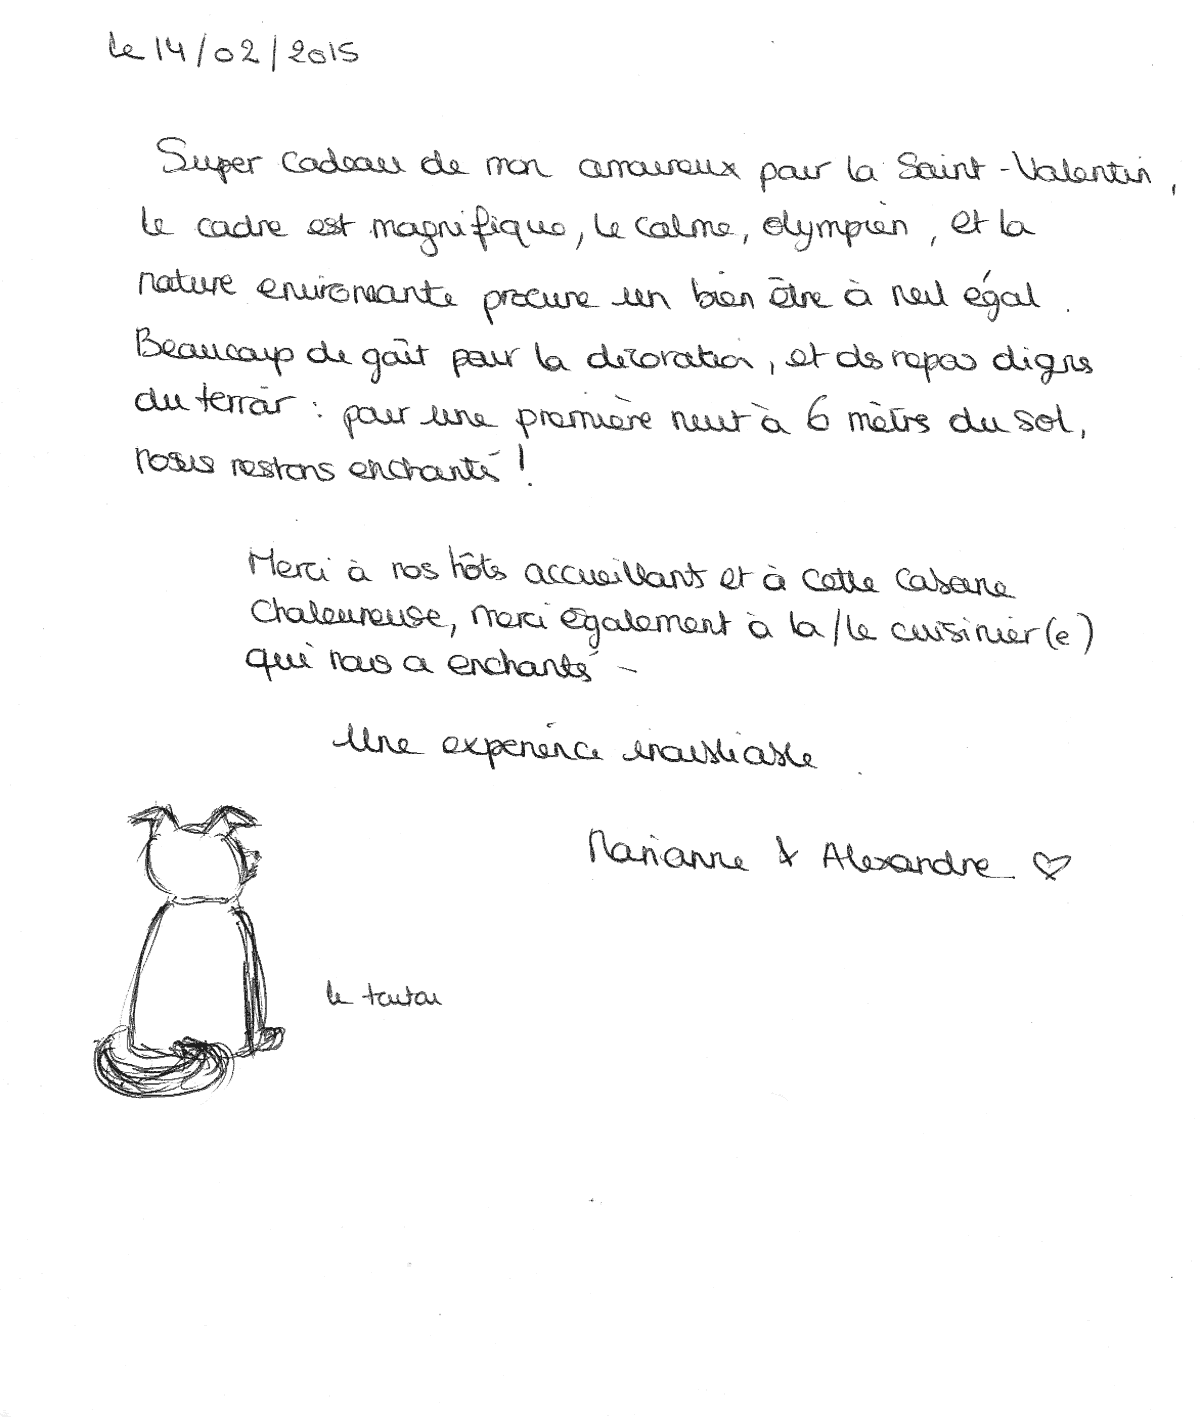 le 14/02/2015
Super cadeau de mon amoureux pour la Saint-Valentin,
le cadre est magnifique, le calme, olympien, et la
nature environnante procure un bien être à nul égal.
Beaucoup de goût pour la décoration, et des repas dignes
du terroir : pour une première nuit à 6 mètres du sol,
nous restons enchantés !
Merci à nos hôtes accueillant et à cette cabane
chaleureuse, merci également à la/le cuisinier(e)
qui nous a enchantés -
Une expérience inoubliable.
Marianne & Alexandre ♡
le toutou